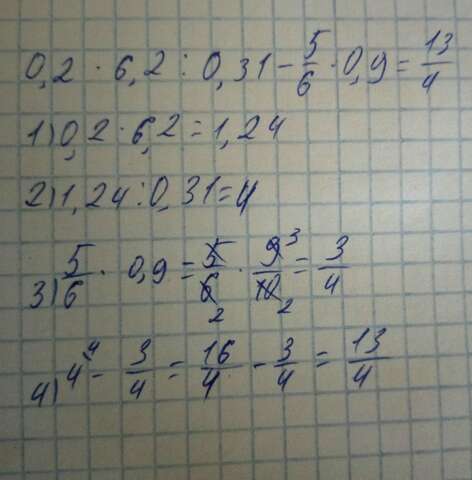 0,2 · 6,2 : 0,31 - 5/6 · 0,9 = 13/4
1) 0,2 · 6,2 = 1,24
2) 1,24 : 0,31 = 4
3) 5/6 · 0,9 = 5/6 2 · 9 3/10 2 = 3/4
4) 4 4 - 3/4 = 16/4 - 3/4 = 13/4